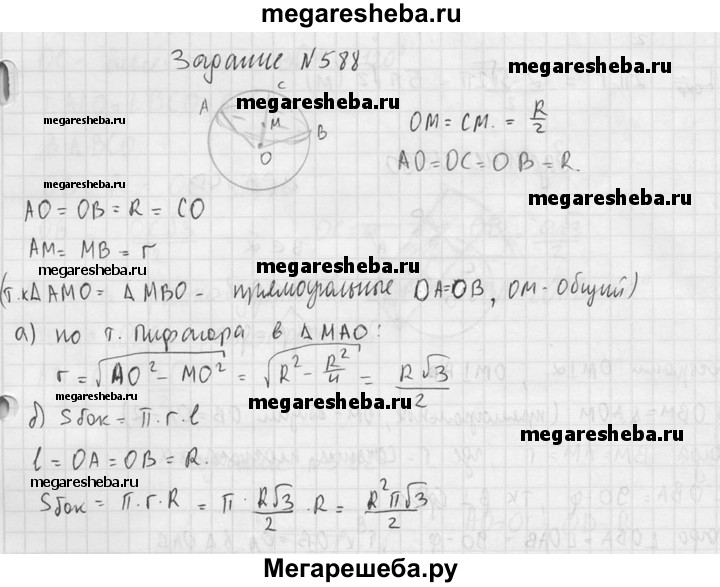 megaresheba.ru
Задание №588
megaresheba.ru
A C B M O
megaresheba.ru
OM = CM. = R/2
AO = OC = OB = R.
megaresheba.ru
megaresheba.ru
AO = OB = R = CO
AM = MB = r
megaresheba.ru
megaresheba.ru
(т.к Δ AMO = Δ MBO - прямоугольные OA=OB, OM - общий)
а) по т. Пифагора в Δ MAO:
megaresheba.ru
r = √(AO² - MO²) = √(R² - R²/4) = R√3/2
megaresheba.ru
б) Sбок = π · r · l
megaresheba.ru
l = OA = OB = R.
megaresheba.ru
Sбок = π · r · R = π · R√3/2 · R = R²π√3/2
Мегарешеба.ру